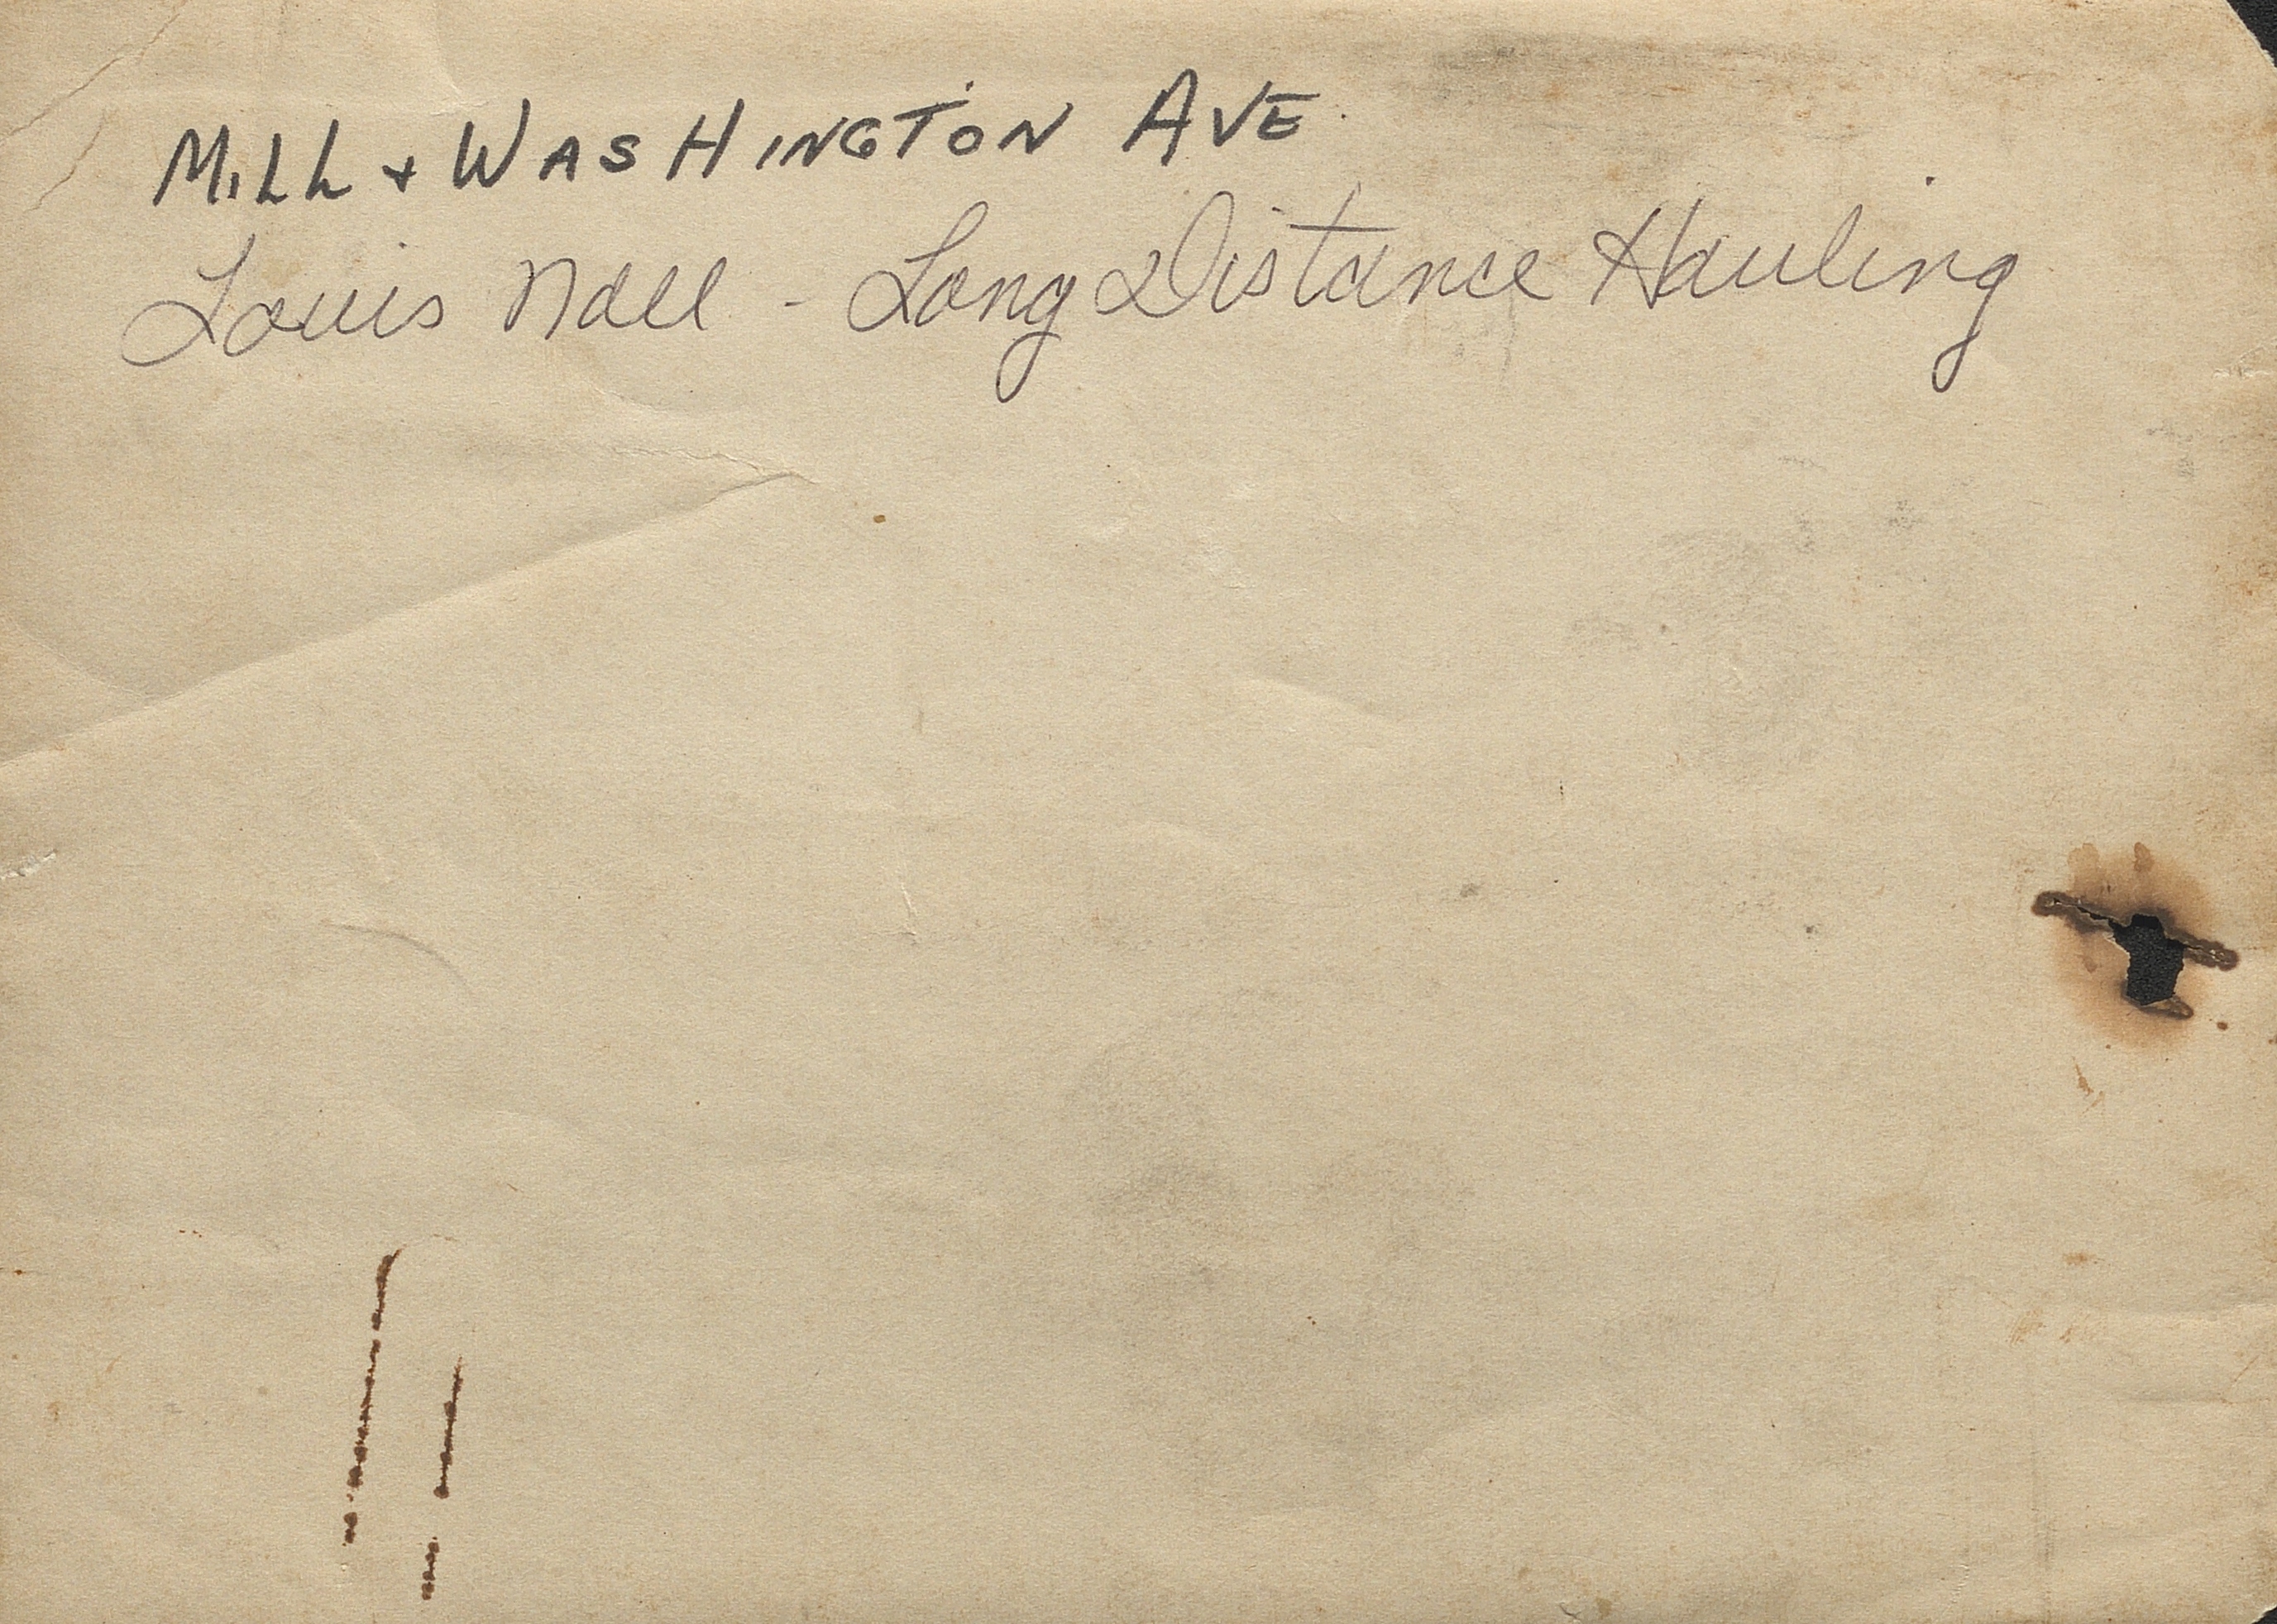 MILL + WASHINGTON AVE.
Louis Noll - Long Distance Hauling